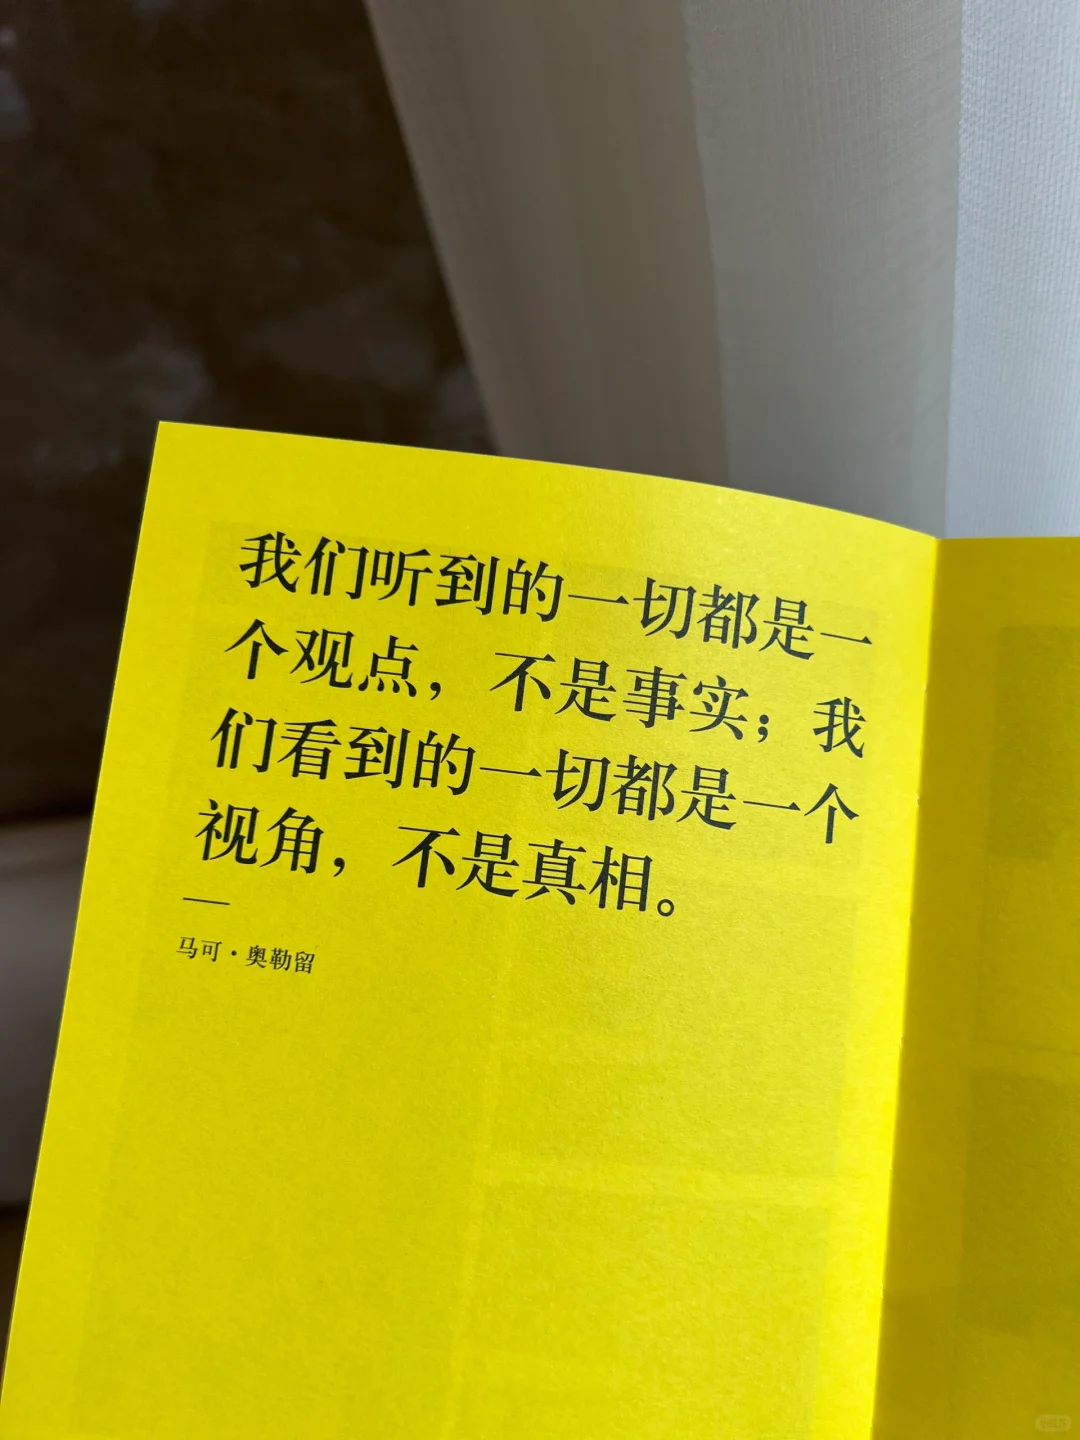 我们听到的一切都是一
个观点，不是事实；我
们看到的一切都是一个
视角，不是真相。
—
马可·奥勒留